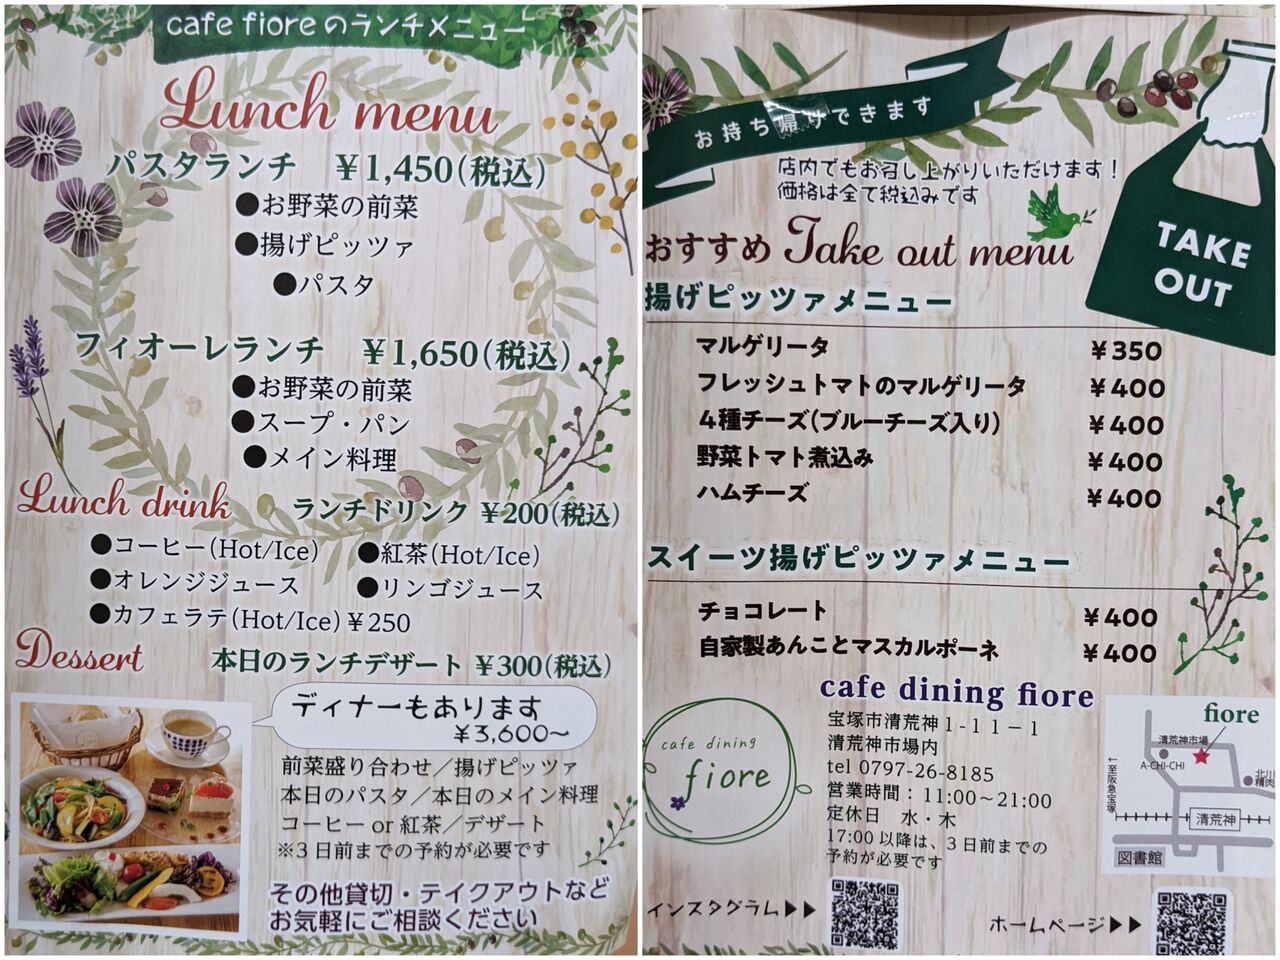 cafe fioreのランチメニュー
Lunch menu
パスタランチ ￥1,450(税込)
●お野菜の前菜
●揚げピッツァ
●パスタ
フィオーレランチ ￥1,650(税込)
●お野菜の前菜
●スープ・パン
●メイン料理
Lunch drink ランチドリンク ￥200(税込)
●コーヒー(Hot/Ice) ●紅茶(Hot/Ice)
●オレンジジュース ●リンゴジュース
●カフェラテ(Hot/Ice)￥250
Dessert 本日のランチデザート ￥300(税込)
ディナーもあります
￥3,600～
前菜盛り合わせ／揚げピッツァ
本日のパスタ／本日のメイン料理
コーヒー or 紅茶／デザート
※3日前までの予約が必要です
その他貸切・テイクアウトなど
お気軽にご相談ください
お持ち帰りできます
店内でもお召し上がりいただけます！
価格は全て税込みです
TAKE
OUT
おすすめ Take out menu
揚げピッツァメニュー
マルゲリータ ￥350
フレッシュトマトのマルゲリータ ￥400
4種チーズ(ブルーチーズ入り) ￥400
野菜トマト煮込み ￥400
ハムチーズ ￥400
スイーツ揚げピッツァメニュー
チョコレート ￥400
自家製あんことマスカルポーネ ￥400
cafe dining fiore
宝塚市清荒神1-11-1
清荒神市場内
tel 0797-26-8185
営業時間：11:00～21:00
定休日 水・木
17:00以降は、3日前までの
予約が必要です
cafe dining
fiore
fiore
清荒神市場
A-CHI-CHI
北川
精肉
←至阪急宝塚
清荒神
図書館
インスタグラム▶▶
ホームページ▶▶